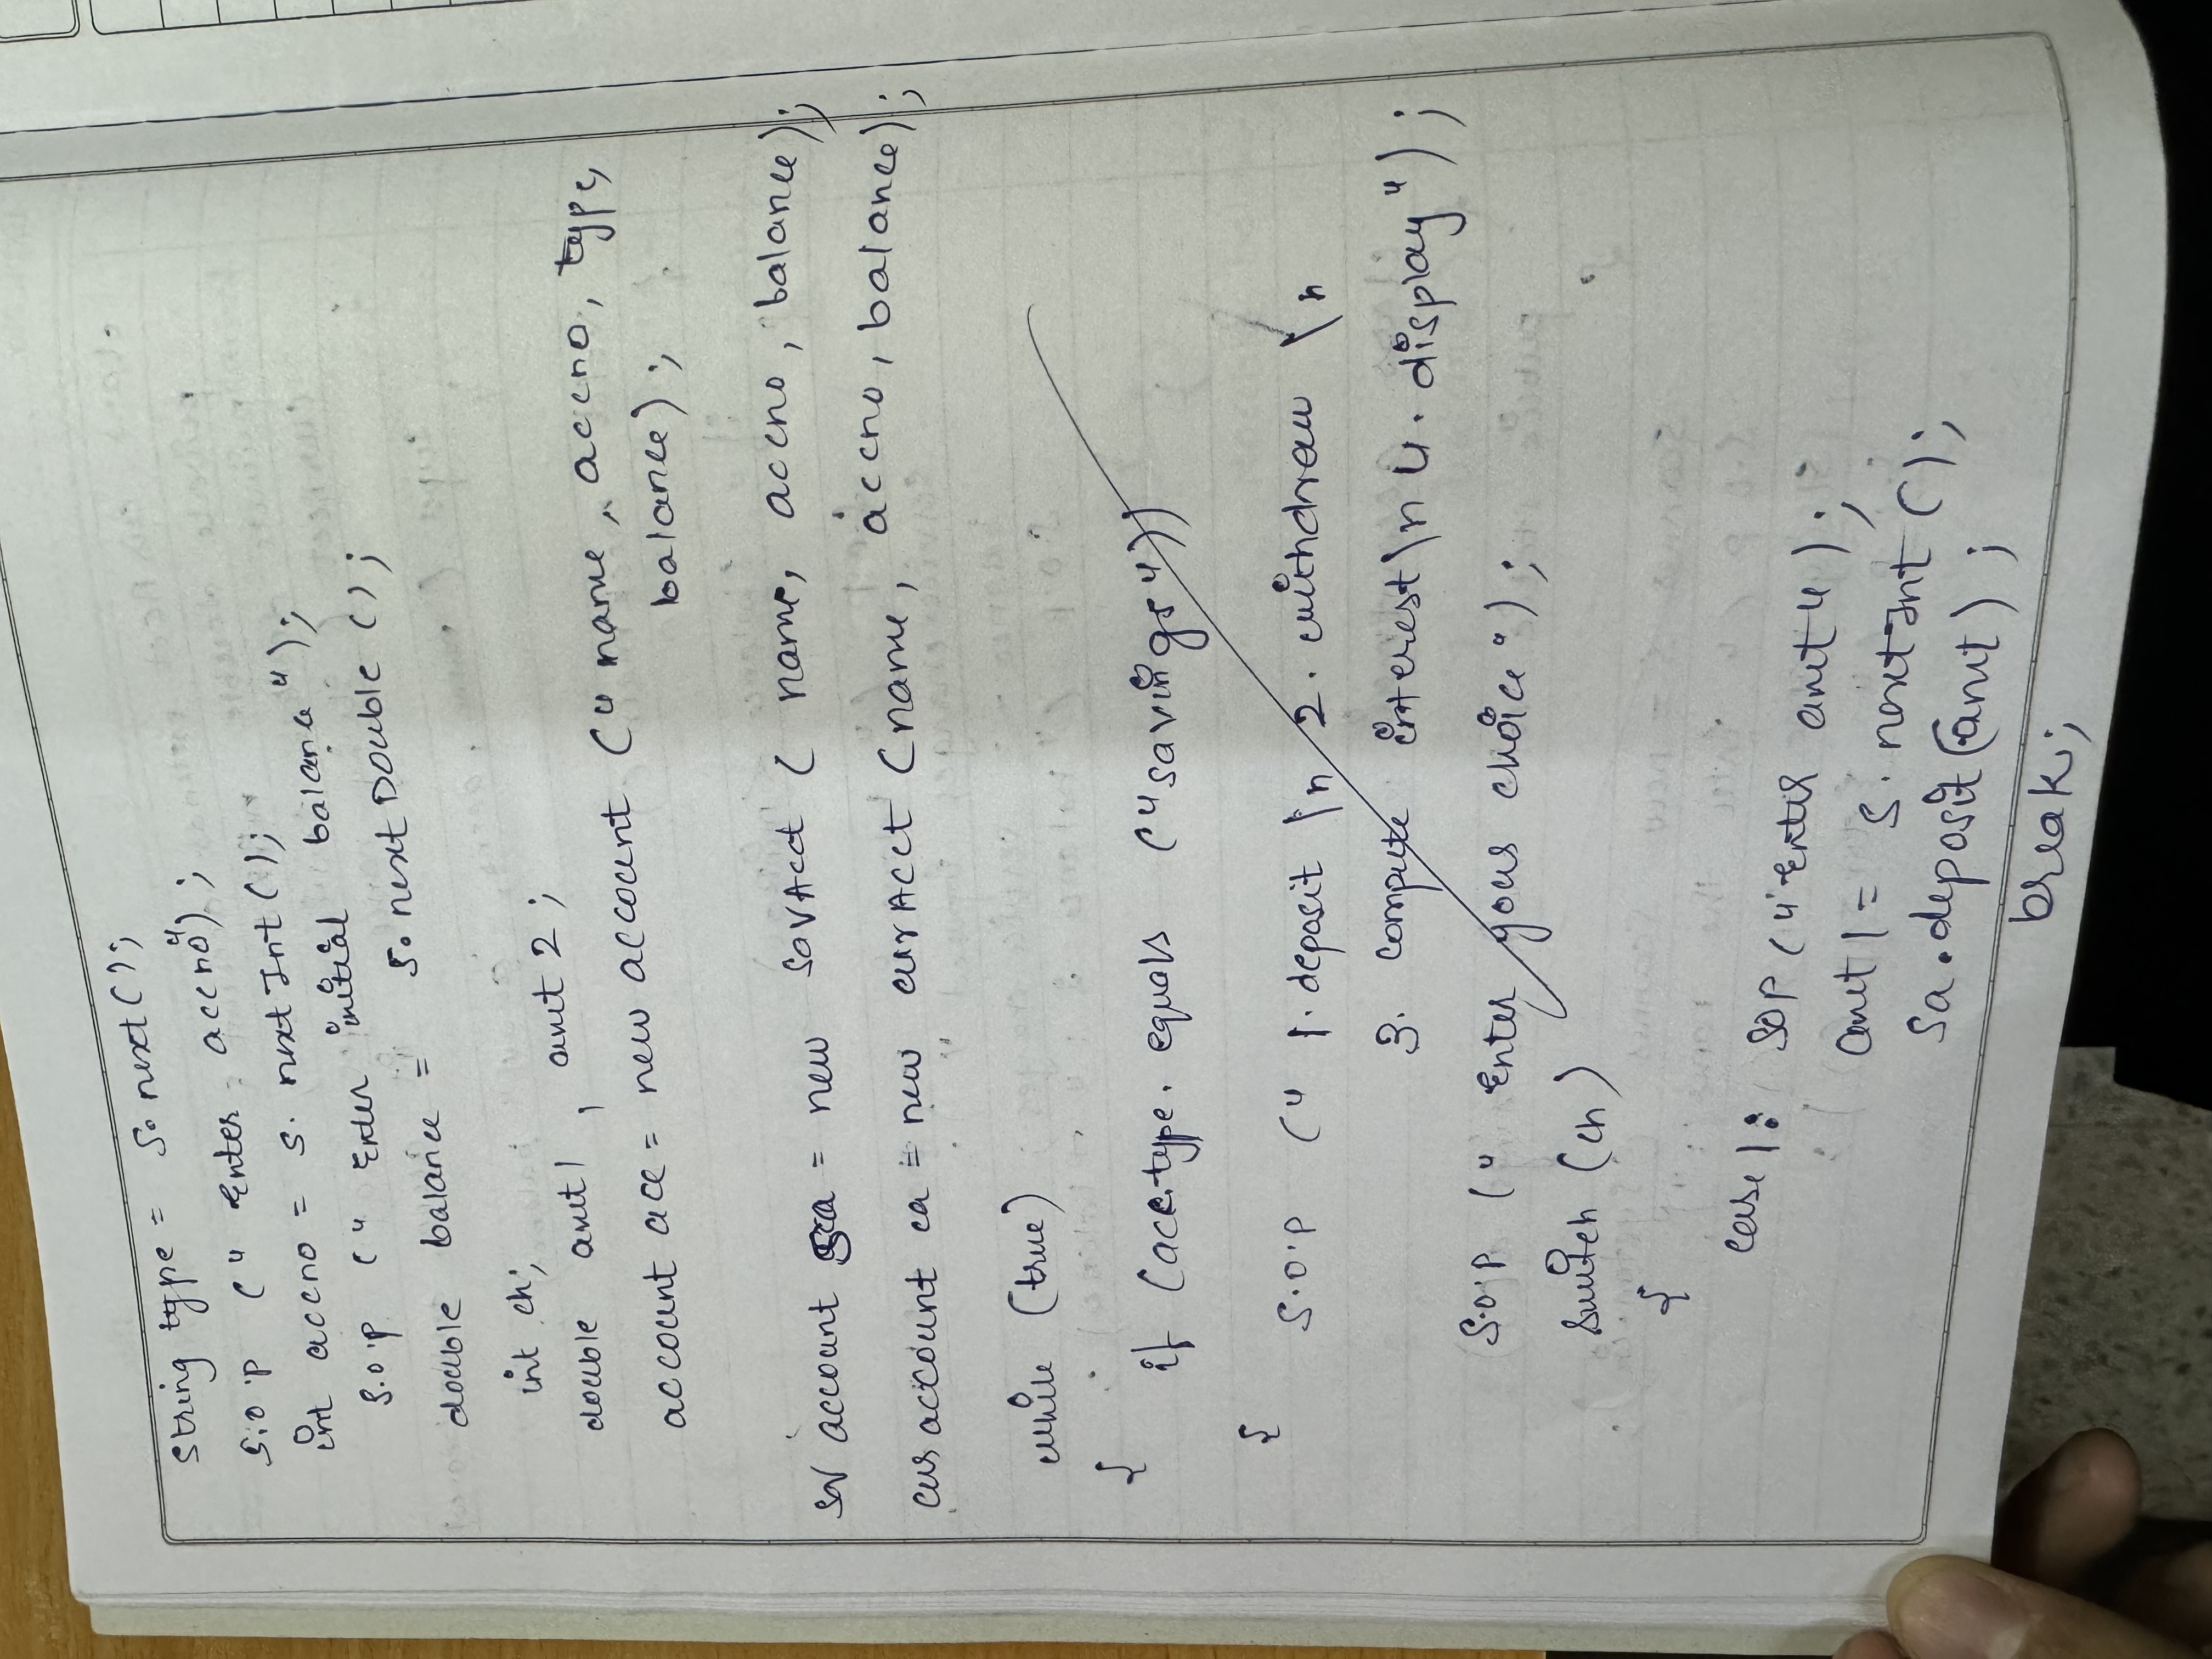 String type = S. next ();
S.o.p (" Enter accno");
int accno = s. nextInt ();
S.o.p (" Enter initial balance");
double balance = s. nextDouble ();
int ch;
double amt1, amt 2;
account acc = new account (" name, accno, type,
balance);
sav account sa = new savAcct ( name, accno, balance);
cur account ca = new curAcct (name, accno, balance);
while (true)
{
if (acc.type. equals ("savings"))
{
S.o.p (" 1. deposit \n 2. withdraw \n
3. compute interest \n 4. display");
S.o.p (" Enter your choice");
switch (ch)
{
case 1: SOP ("Enter amt");
amt 1 = S. nextInt ();
Sa.deposit(amt);
break;